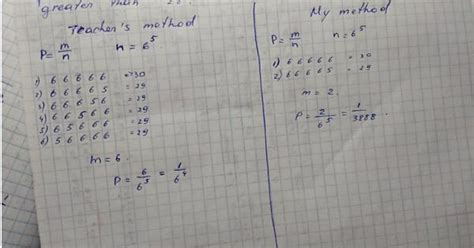 greater than
Teacher's method
P = m/n n = 6⁵
1) 6 6 6 6 6 = 30
2) 6 6 6 6 5 = 29
3) 6 6 6 5 6 = 29
4) 6 6 5 6 6 = 29
5) 6 5 6 6 6 = 29
6) 5 6 6 6 6 = 29
m = 6.
P = 6/6⁵ = 1/6⁴
My method
P = m/n n = 6⁵
1) 6 6 6 6 6 = 30
2) 6 6 6 6 5 = 29
m = 2.
P = 2/6⁵ = 1/3888.